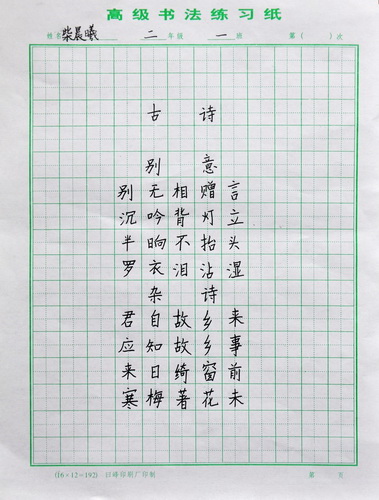 高级书法练习纸
姓名 柴晨曦 二 年级 一 班 第( )次
古诗
别意
别无相赠言
沉吟背灯立
半晌不抬头
罗衣泪沾湿
杂诗
君自故乡来
应知故乡事
来日绮窗前
寒梅著花未
(16×12=192) 印刷厂印制 第 页